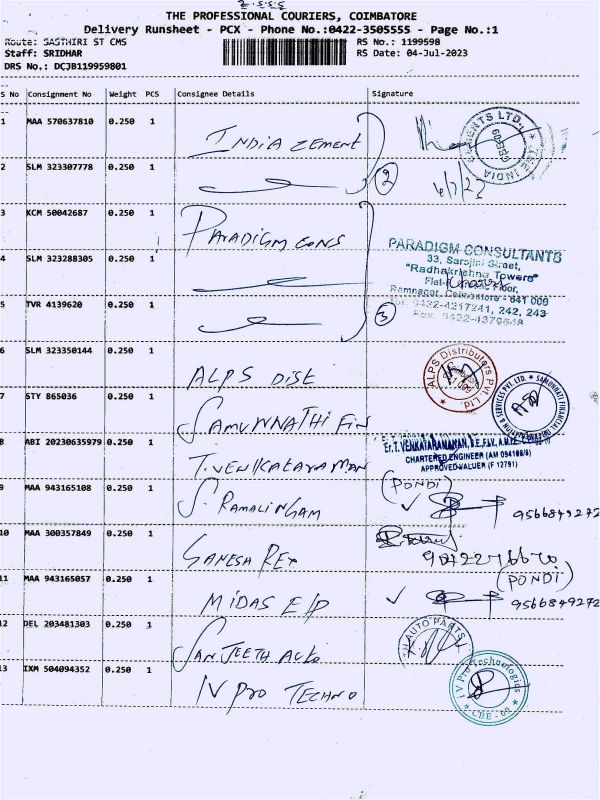 THE PROFESSIONAL COURIERS, COIMBATORE
Delivery Runsheet - PCX - Phone No.:0422-3505555 - Page No.:1
Route: SASTHIRI ST CMS
RS No.: 1199598
Staff: SRIDHAR
RS Date: 04-Jul-2023
DRS No.: DCJB119959801
S No Consignment No Weight PCS Consignee Details Signature
1 MAA 570637810 0.250 1 INDIA CEMENT
2 SLM 323307778 0.250 1 2 6/7/23
3 KCM 50042687 0.250 1 PARADIGM CONS
PARADIGM CONSULTANTS
33, Sarojini Street,
4 SLM 323288305 0.250 1
"Radhakrishna Towers"
Floor,
Ramnagar, Coimbatore - 641 009
5 TVR 4139620 0.250 1 3
Tel: 0422-4217241, 242, 243
Fax: 0422-4379648
6 SLM 323350144 0.250 1 ALPS DIST
ALPS Distributors Pvt. Ltd.
7 STY 865036 0.250 1 SAMUNNATHI FIN
8 ABI 20230635979 0.250 1 T. VENKATARAMAN
Er.T.VENKATARAMAN, B.E.,F.I.V.,
CHARTERED ENGINEER (AM 094186/8)
APPROVED VALUER (F 12791)
9 MAA 943165108 0.250 1 S. RAMALINGAM
(PONDI)
✓ 9566849272
10 MAA 300357849 0.250 1 GANESA REX
11 MAA 943165057 0.250 1 MIDAS E/P
(PONDI)
✓ 9566849272
12 DEL 203481303 0.250 1 SANJEETH AUTO
AUTO PARTS
13 IXM 504094352 0.250 1 IV PRO TECHNO
iV Pro Technologies
CBE - 09